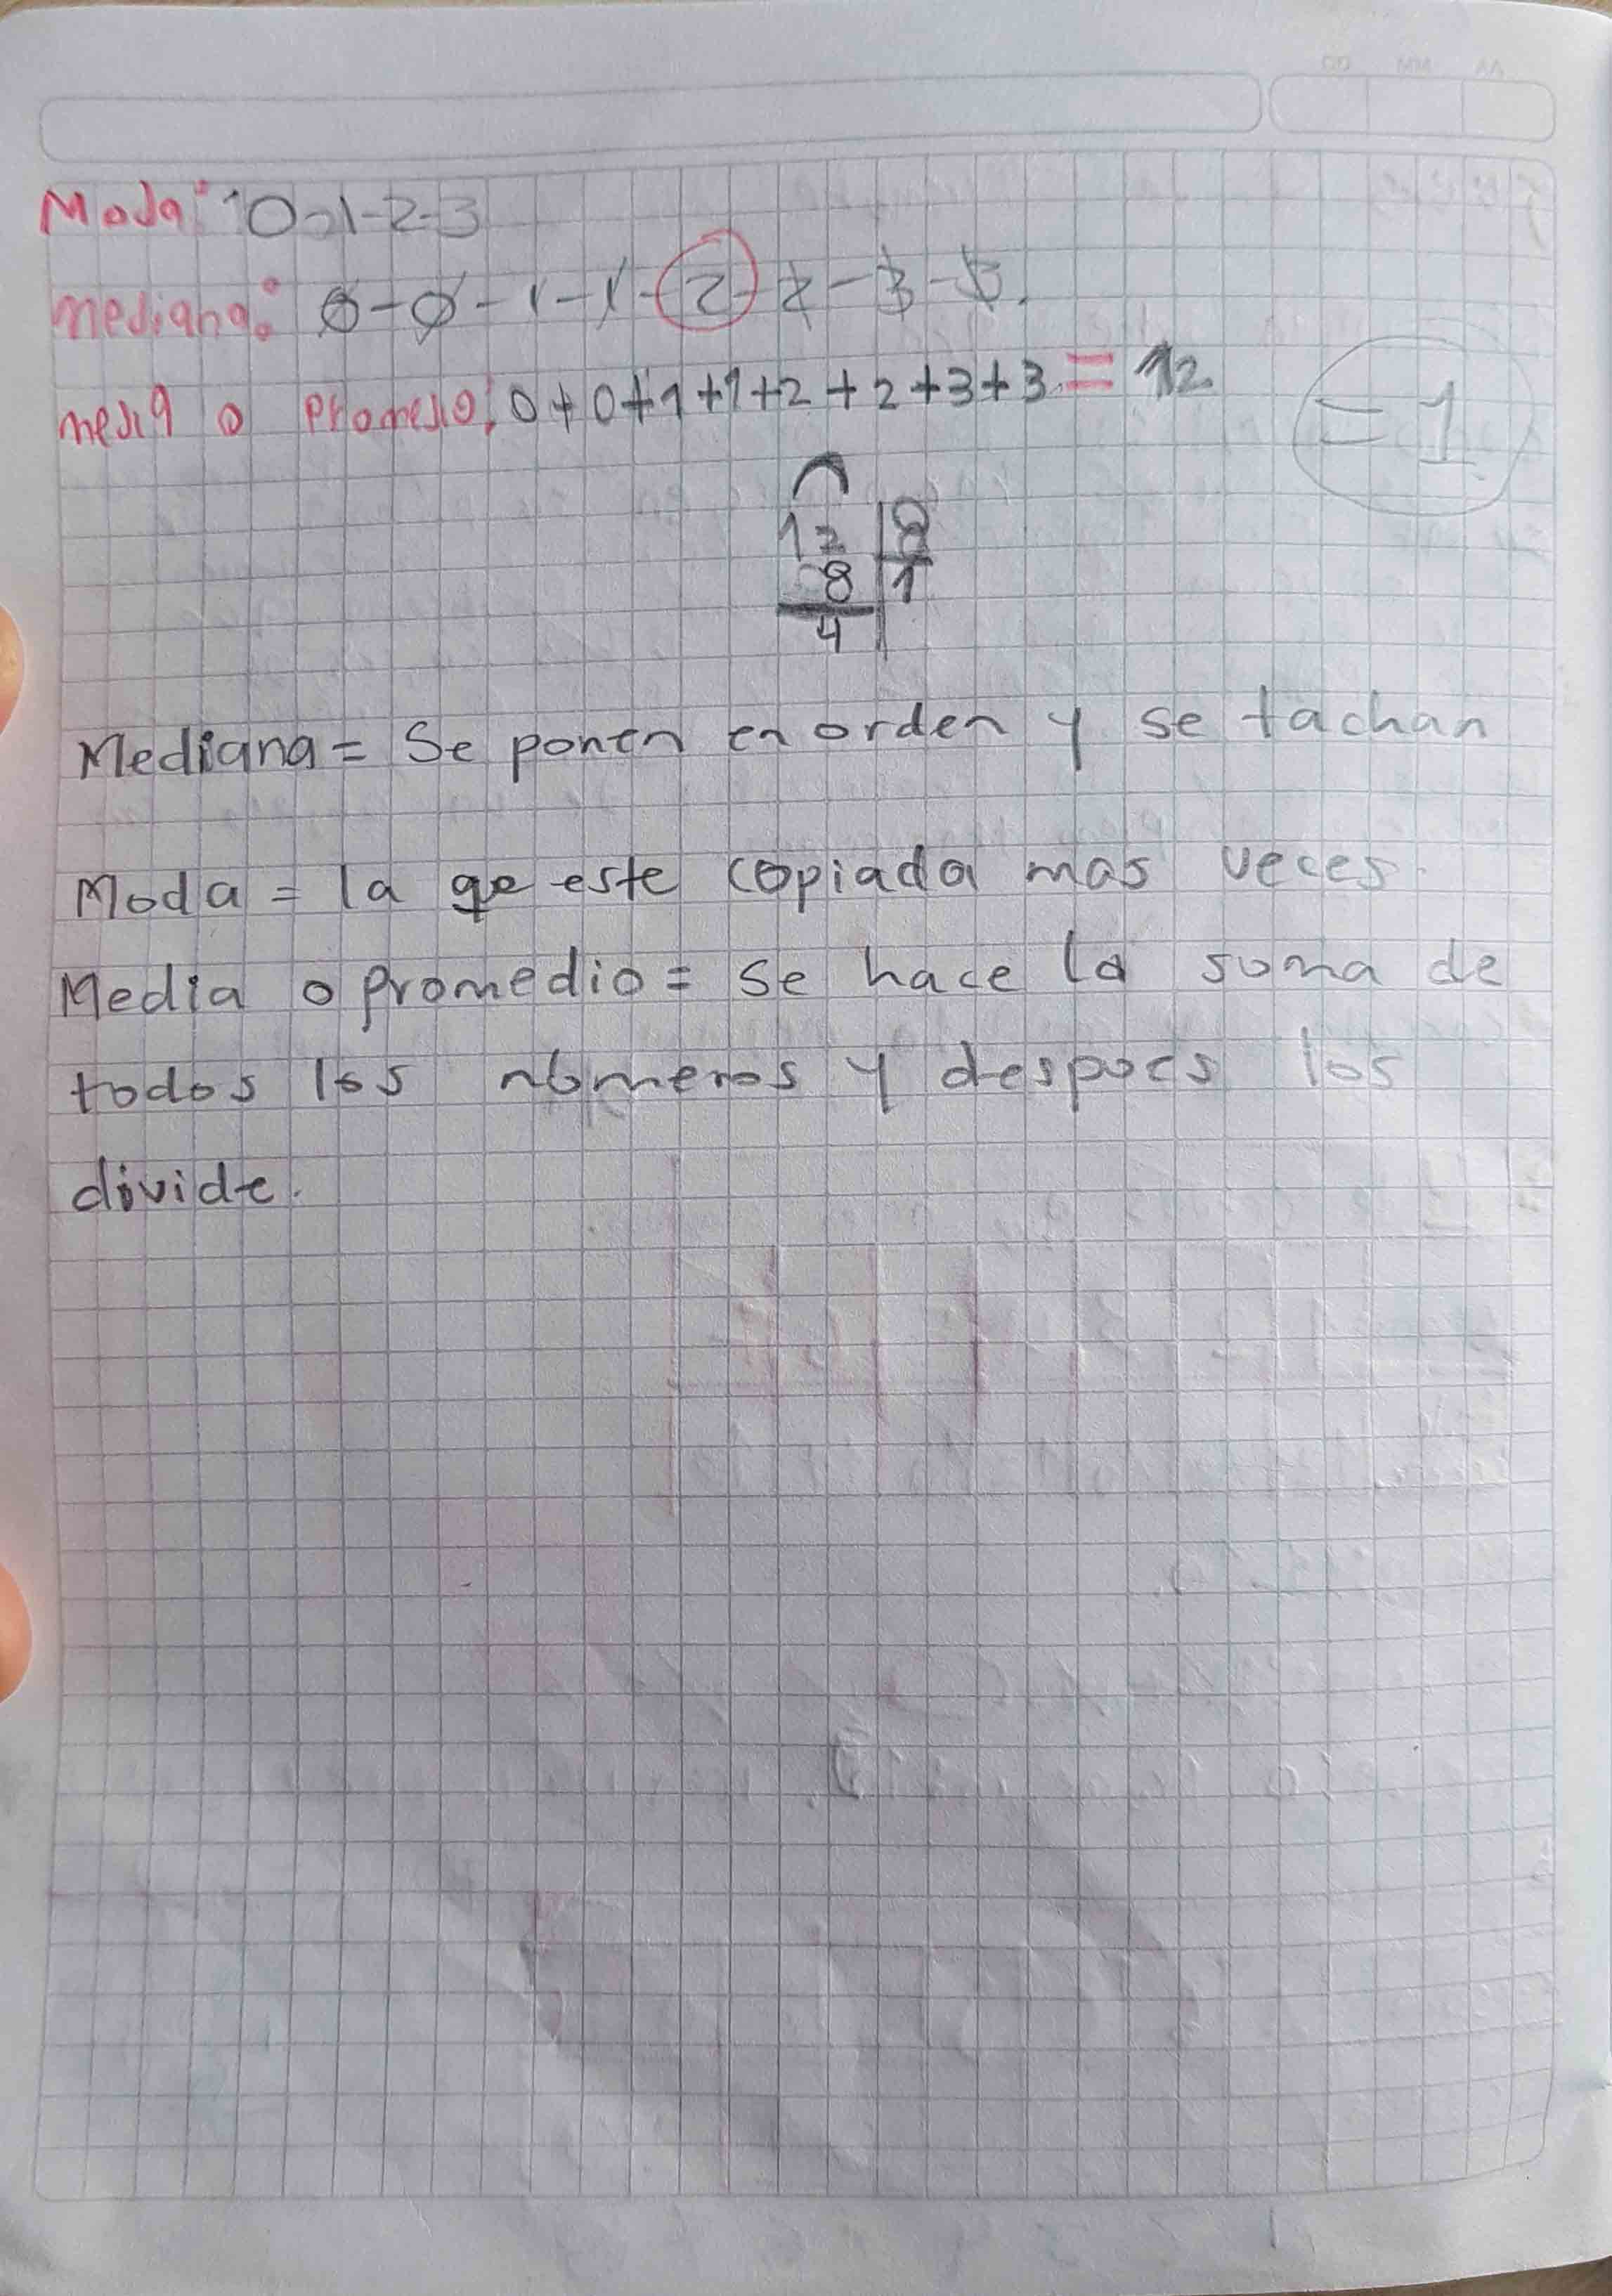 Moda: 0-1-2-3
mediana: 0-0-1-1-2-2-3-3.
media o Promedio: 0+0+1+1+2+2+3+3 = 12
= 1
12 8
8 1
4
Mediana = Se ponen en orden y se tachan
Moda = la qe este copiada mas veces.
Media o promedio = Se hace la suma de
todos los números y despues los
divide.